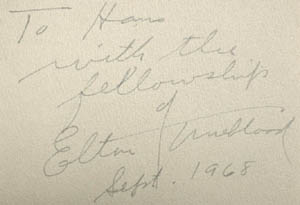 To Hans
with the
fellowship
of
Elton Trueblood
Sept. 1968